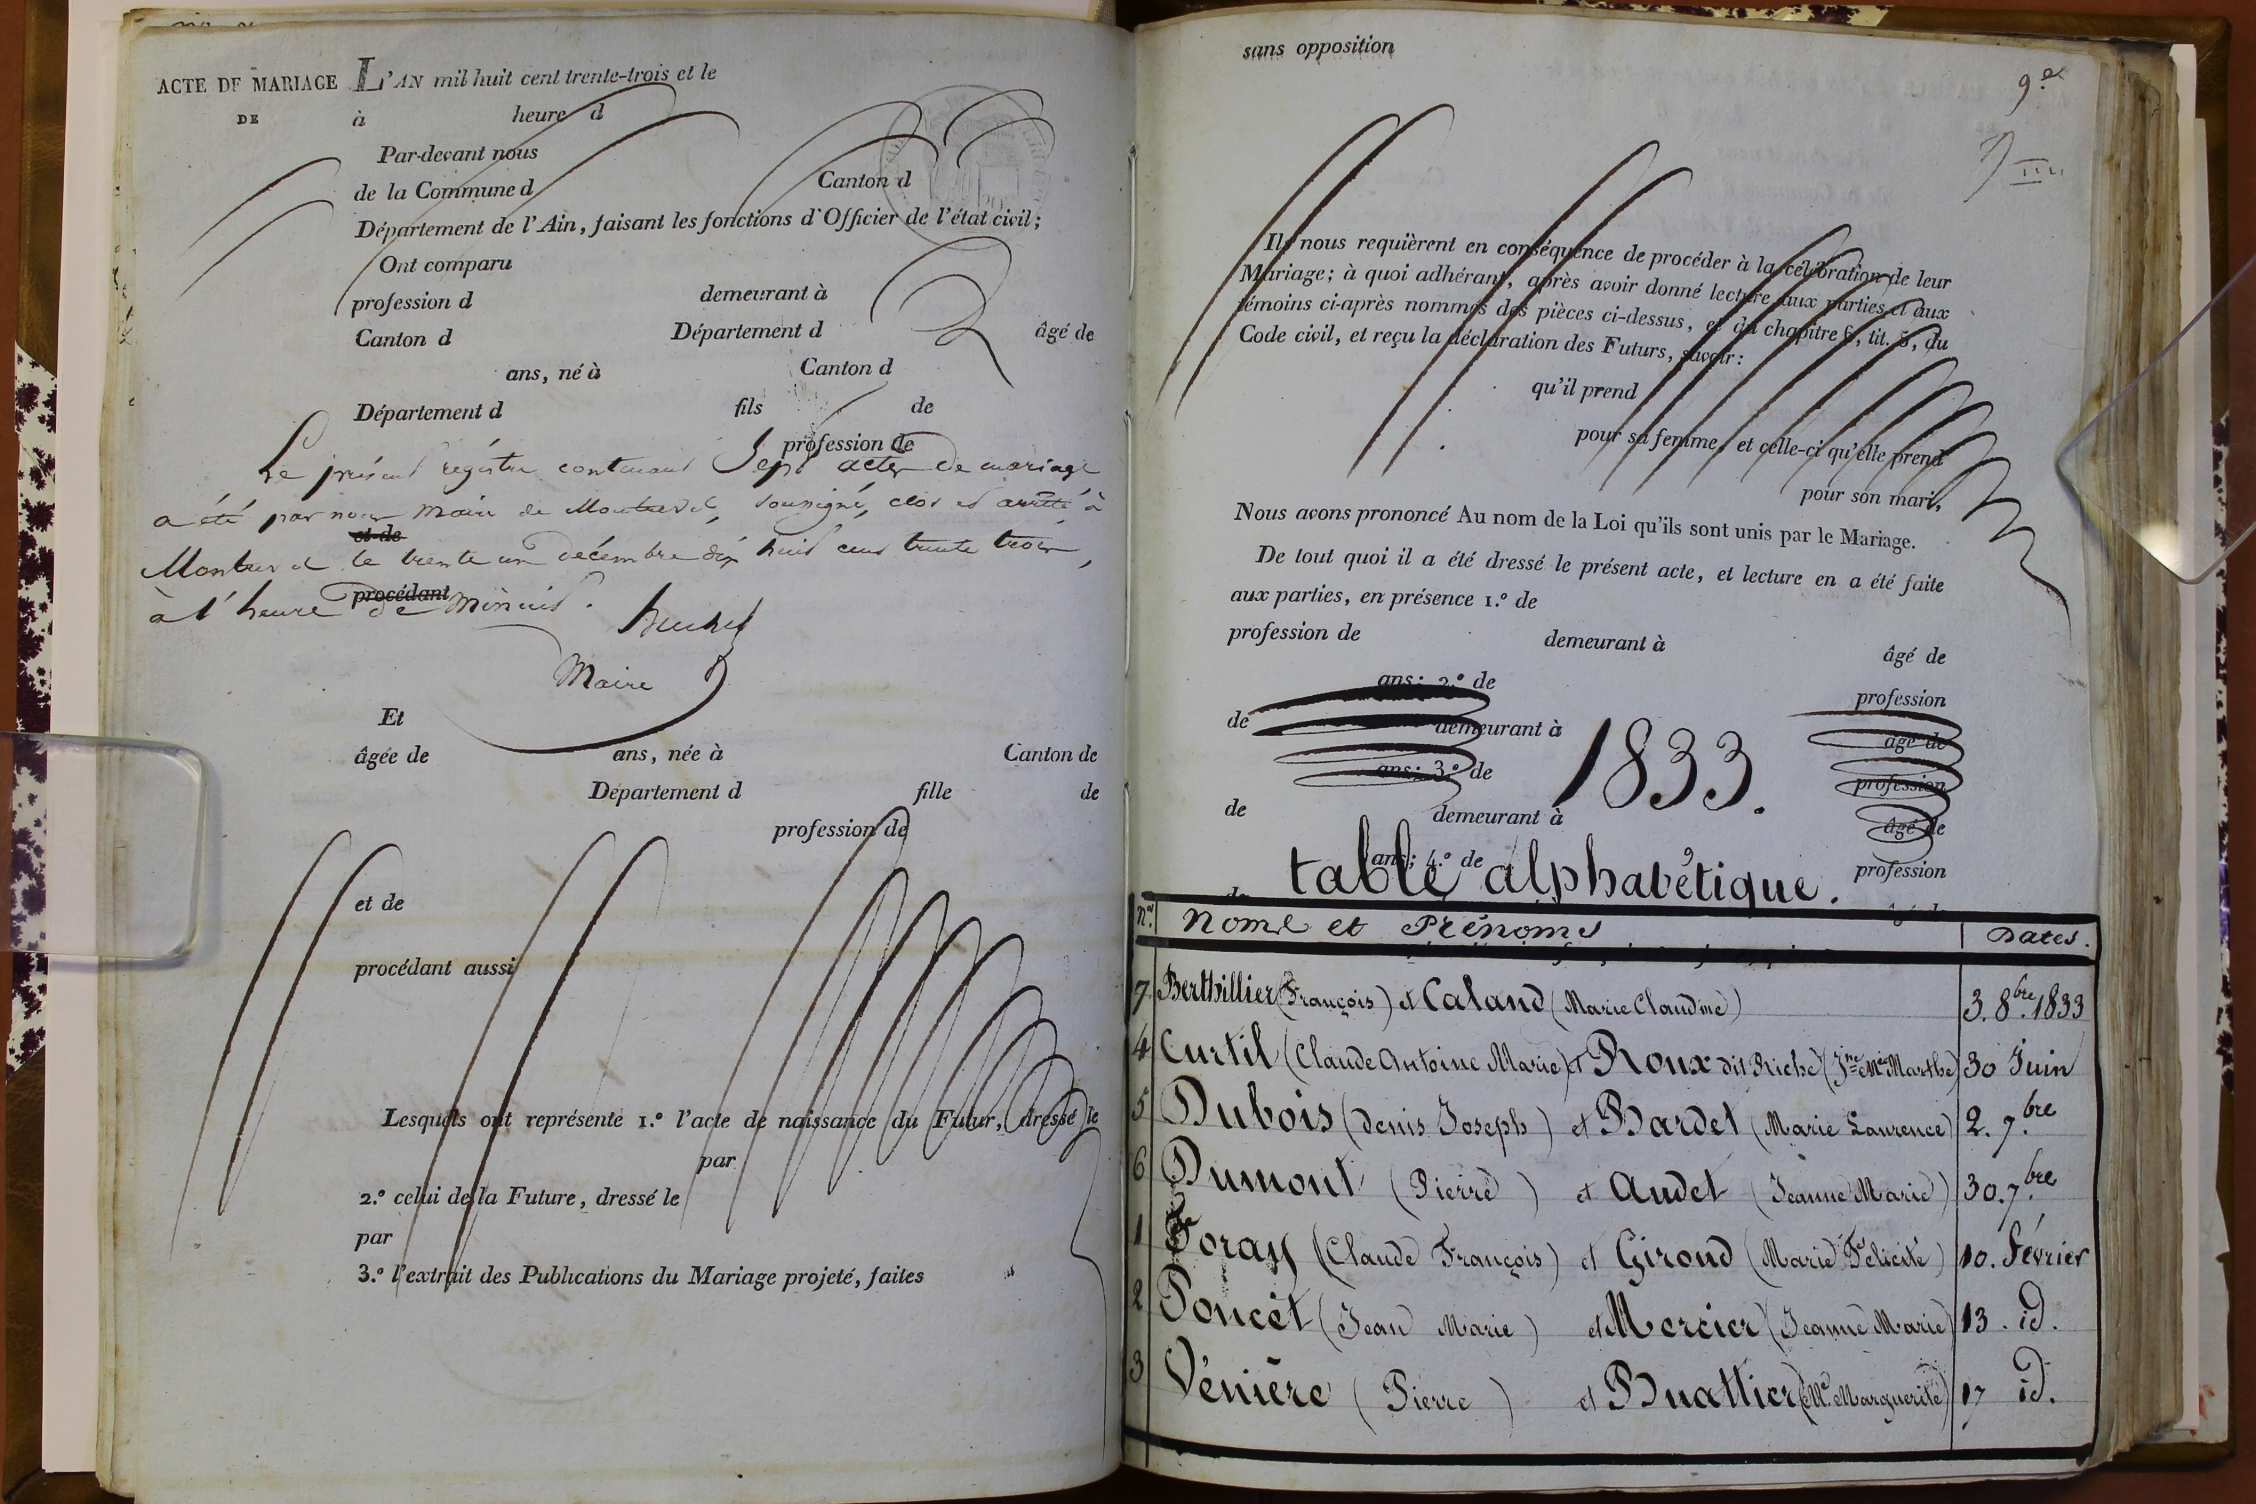 ACTE DE MARIAGE L'AN mil huit cent trente-trois et le
DE à heure d
Par-devant nous
de la Commune d Canton d
Département de l'Ain, faisant les fonctions d'Officier de l'état civil;
Ont comparu
profession d demeurant à
Canton d Département d âgé de
ans, né à Canton d
Département d fils de
profession de
Le présent régistre contenant Sept actes de mariage
a été par nous maire de Montrevel, soussigné, clos et arrêté à
et de
Montrevel le trente un décembre dix huit cent trente trois,
procédant
à l'heure de minuit.
Maire
Et
âgée de ans, née à Canton de
Département d fille de
profession de
et de
procédant aussi
Lesquels ont représenté 1.º l'acte de naissance du Futur, dressé le
par
2.º celui de la Future, dressé le
par
3.º l'extrait des Publications du Mariage projeté, faites
sans opposition
9.e
Ils nous requièrent en conséquence de procéder à la célébration de leur
Mariage; à quoi adhérant, après avoir donné lecture aux parties et aux
témoins ci-après nommés des pièces ci-dessus, et du chapitre 6, tit. 5, du
Code civil, et reçu la déclaration des Futurs, savoir:
qu'il prend
pour sa femme, et celle-ci qu'elle prend
pour son mari,
Nous avons prononcé Au nom de la Loi qu'ils sont unis par le Mariage.
De tout quoi il a été dressé le présent acte, et lecture en a été faite
aux parties, en présence 1.º de
profession de demeurant à âgé de
ans; 2.º de profession
de demeurant à âgé de
ans; 3.º de profession
1833.
de demeurant à âgé de
ans; 4.º de profession
table alphabétique.
de âgé de
Nos. Noms et Prénoms Dates.
7 Berthillier (François) et Caland (Marie Claudine) 3. 8bre. 1833
4 Curtil (Claude Antoine Marie) et Roux dit Riche (Jne Mie Marthe) 30 Juin
5 Dubois (Denis Joseph) et Bardet (Marie Laurence) 2. 7.bre
6 Dumont (Pierre) et Audet (Jeanne Marie) 30. 7.bre
1 Foray (Claude François) et Giroud (Marie Félicité) 10. Février
2 Poncet (Jean Marie) et Mercier (Jeanne Marie) 13. id.
3 Vénière (Pierre) et Buattier (Mie. Marguerite) 17 id.